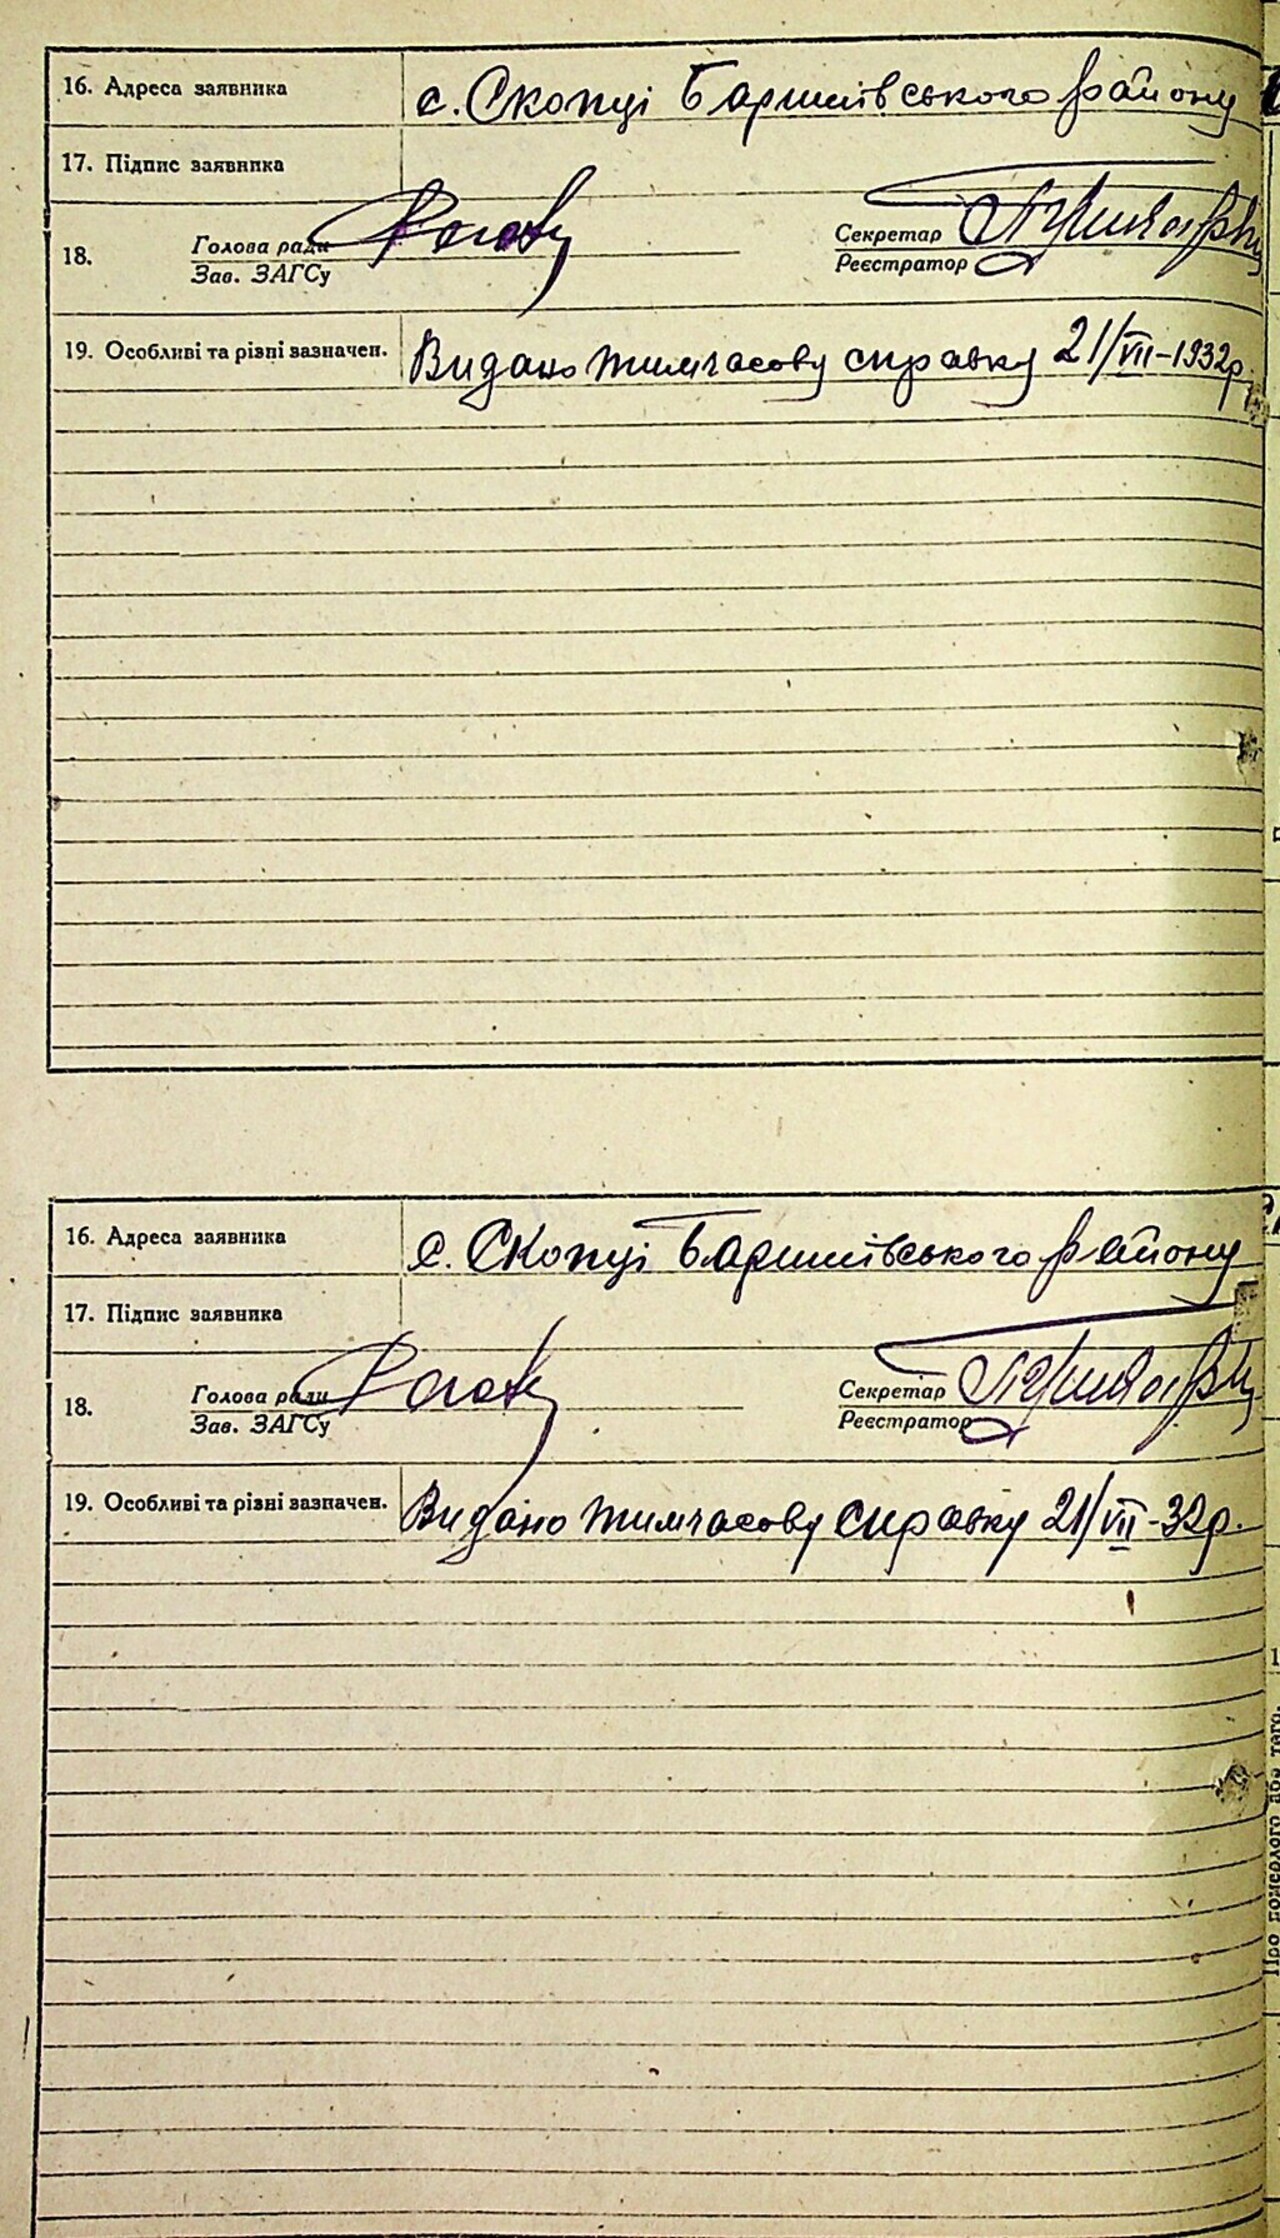 16. Адреса заявника с. Скопці Баришівського району
17. Підпис заявника
18. Голова ради Секретар
Зав. ЗАГСу Реєстратор
19. Особливі та різні зазначен. Видано тимчасову справку 21/VII-1932р.
16. Адреса заявника с. Скопці Баришівського району
17. Підпис заявника
18. Голова ради Секретар
Зав. ЗАГСу Реєстратор
19. Особливі та різні зазначен. Видано тимчасову справку 21/VII-32р.